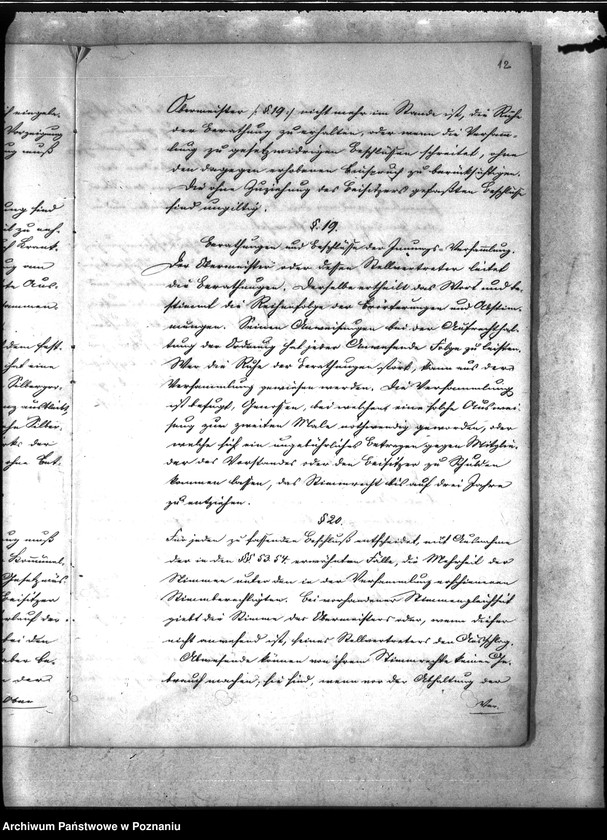 12
Obermeister /: §.19 :/ nicht mehr im Stande ist, die Ruhe
der Berathung zu erhalten, oder wenn die Versamm-
lung zu gesetzwidrigen Beschlüssen schreitet, ohne
den dagegen erhobenen Einspruch zu berücksichtigen.
Die ohne Zuziehung des Beisitzers gefaßten Beschlüsse
sind ungiltig.
§. 19.
Berathungen und Beschlüsse der Innungs-Versammlung.
Der Obermeister oder dessen Stellvertreter leitet
die Berathungen. Derselbe ertheilt das Wort und be-
stimmt die Reihenfolge der Erörterungen und Abstim-
mungen. Seinen Anweisungen bei der Aufrechthal-
tung der Ordnung hat jeder Anwesende Folge zu leisten.
Wer die Ruhe der Berathungen stört, kann aus der
Versammlung gewiesen werden. Die Versammlung
ist befugt, Genossen, bei welchen eine solche Auswei-
sung zum zweiten Male nothwendig geworden, oder
welche sich ein ungebührliches Betragen gegen Mitglie-
der des Vorstandes oder den Beisitzer zu Schulden
kommen lassen, das Stimmrecht bis auf drei Jahre
zu entziehen.
§ 20.
Für jeden zu fassenden Beschluß entscheidet, mit Ausnahme
der in den §§ 53 54 erwähnten Fälle, die Mehrheit der
Stimmen unter den in der Versammlung erschienenen
Stimmberechtigten. Bei vorhandener Stimmengleichheit
giebt die Stimme des Obermeisters oder, wenn dieser
nicht anwesend ist, seines Stellvertreters den Ausschlag.
Abwesende können von ihrem Stimmrechte keinen Ge-
brauch machen, sie sind, wenn vor der Abhaltung der
Ver-
Archiwum Państwowe w Poznaniu